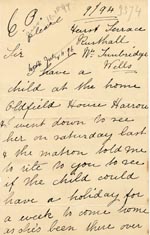 9/94
Hurst Terrace
Rusthall
Sir Nr. Tunbridge
Wells
I have a
child at the home
Oldfield House Harrow
I went down to see
her on Saturday last
& the matron told me
to rite to you to see
if the child could
have a holiday for
a week to come home
as she's been there over